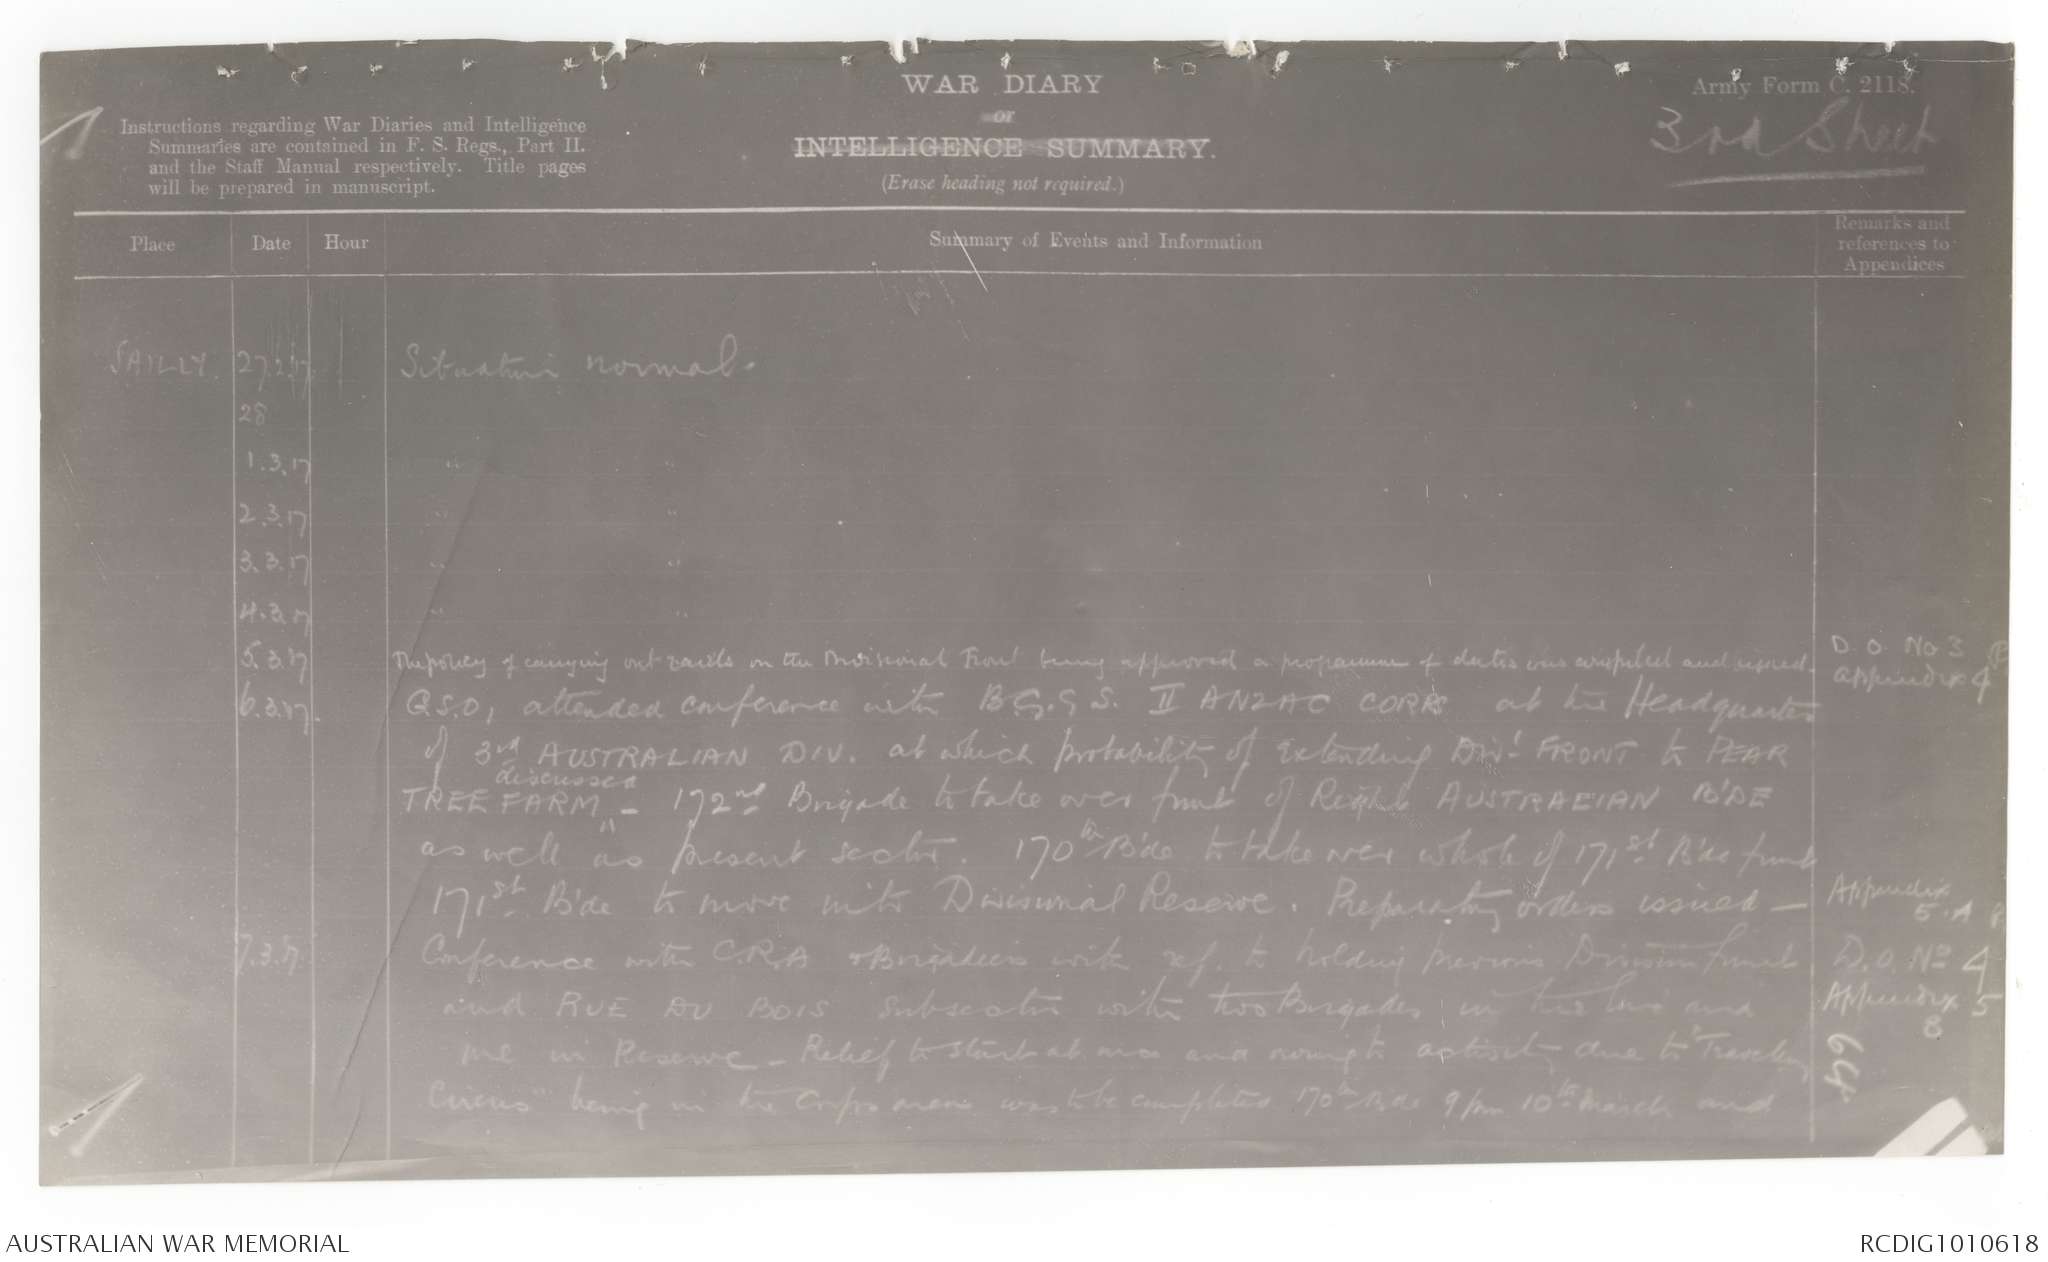 WAR DIARY
or
INTELLIGENCE SUMMARY.
(Erase heading not required.)
Army Form C. 2118.
3rd Sheet
Instructions regarding War Diaries and Intelligence
Summaries are contained in F. S. Regs., Part II.
and the Staff Manual respectively. Title pages
will be prepared in manuscript.
Place Date Hour Summary of Events and Information Remarks and references to Appendices
SAILLY 27.2.17 Situation normal.
28
1.3.17 " "
2.3.17 " "
3.3.17 " "
4.3.17 " "
5.3.17 The policy of carrying out raids on the Divisional Front being approved a programme of dates was compiled and issued. D. O. No 3
Appendix 4
6.3.17. G.S.O, attended conference with B.G.G.S. II ANZAC CORPS at the Headquarters
of 3rd AUSTRALIAN DIV. at which probability of extending Div'l FRONT to PEAR
discussed
TREE FARM - 172nd Brigade to take over front of Right AUSTRALIAN B'DE
as well as present sector. 170th B'de to take over whole of 171st B'de front
171st B'de to move into Divisional Reserve. Preparatory orders issued - Appendix 5.A
7.3.17. Conference with C.R.A & Brigadiers with ref. to holding previous Division front D.O. No 4
and RUE DU BOIS Subsector with two Brigades in the line and Appendix 5
one in Reserve - Relief to start at once and owing to activity due to "Travelling 8
Circus" being in the Corps area was to be completed 170th Bde 9 pm 10th March and
AUSTRALIAN WAR MEMORIAL
RCDIG1010618